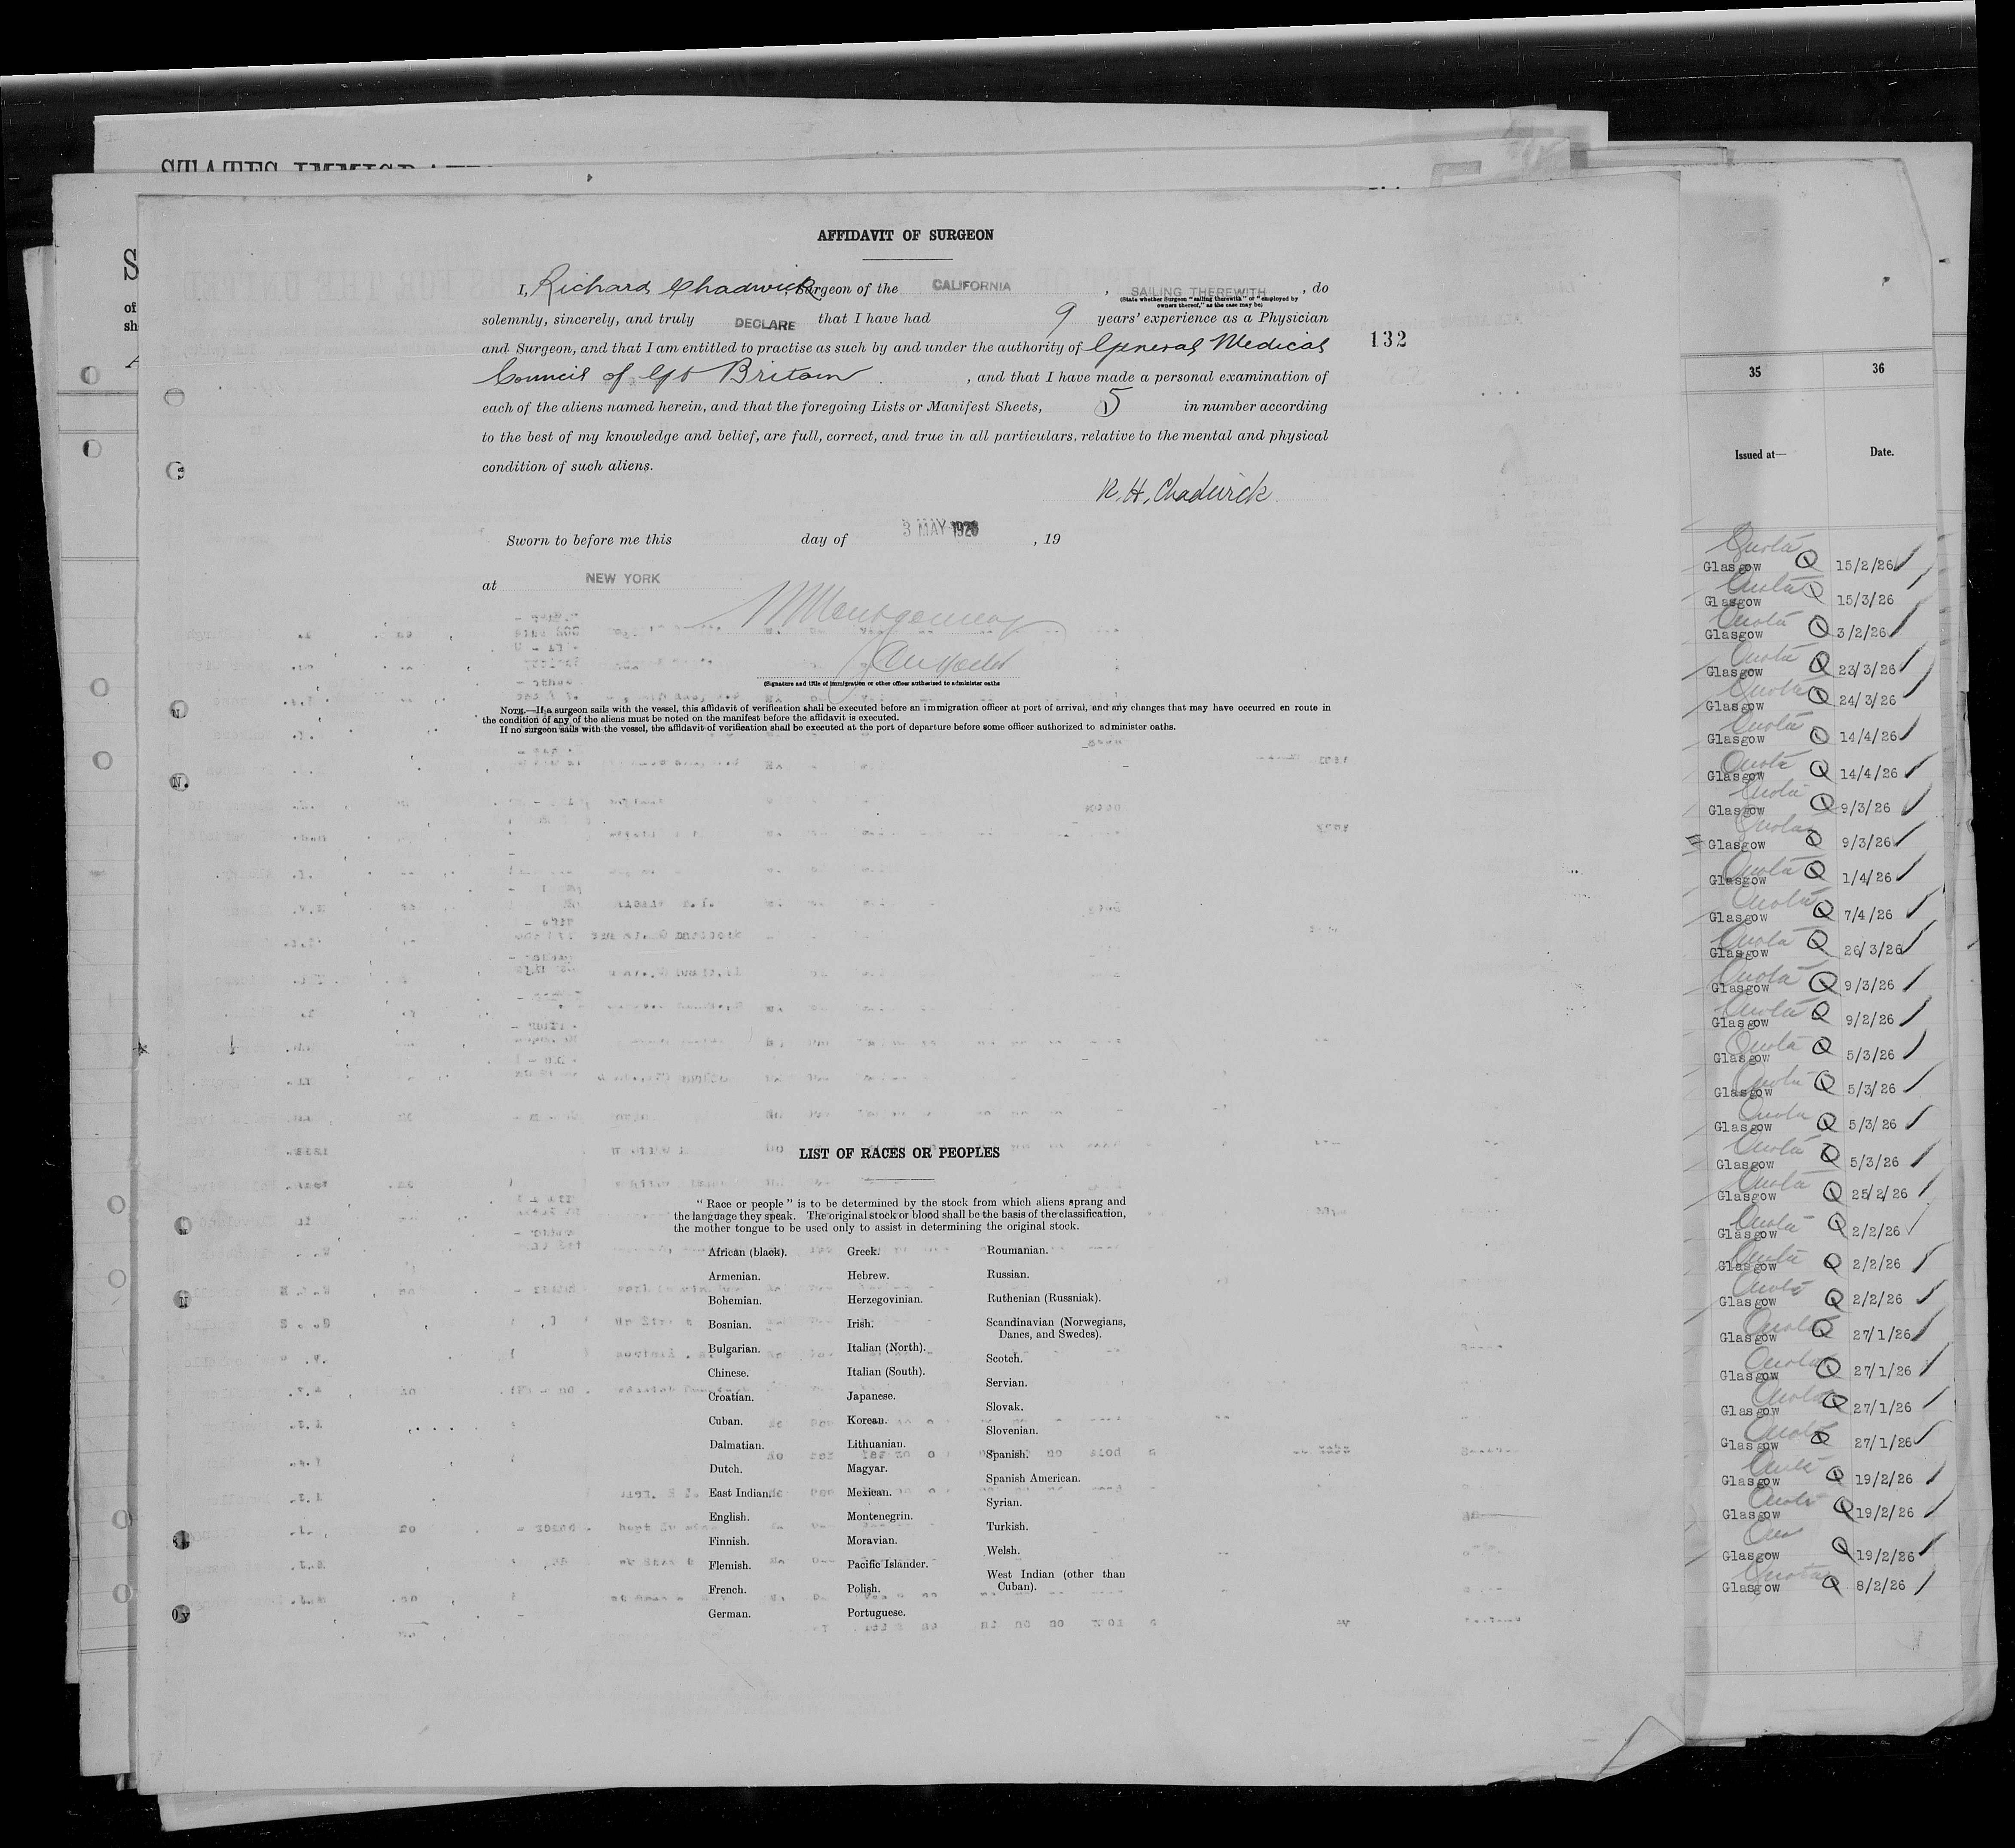 STATES IMMIGRAT
S
of
sh
AFFIDAVIT OF SURGEON
I, Richard Chadwick Surgeon of the CALIFORNIA , SAILING THEREWITH , do
(State whether Surgeon "sailing therewith" or "employed by
owners thereof," as the case may be)
solemnly, sincerely, and truly DECLARE that I have had 9 years' experience as a Physician
and Surgeon, and that I am entitled to practise as such by and under the authority of General Medical
132
Council of Gt Britain , and that I have made a personal examination of
each of the aliens named herein, and that the foregoing Lists or Manifest Sheets, 5 in number according
to the best of my knowledge and belief, are full, correct, and true in all particulars, relative to the mental and physical
condition of such aliens.
R. H. Chadwick
Sworn to before me this day of 3 MAY 1926 , 19
at NEW YORK
(Signature and title of immigration or other officer authorized to administer oaths
NOTE.—If a surgeon sails with the vessel, this affidavit of verification shall be executed before an immigration officer at port of arrival, and any changes that may have occurred en route in
the condition of any of the aliens must be noted on the manifest before the affidavit is executed.
If no surgeon sails with the vessel, the affidavit of verification shall be executed at the port of departure before some officer authorized to administer oaths.
LIST OF RACES OR PEOPLES
"Race or people" is to be determined by the stock from which aliens sprang and
the language they speak. The original stock or blood shall be the basis of the classification,
the mother tongue to be used only to assist in determining the original stock.
African (black).
Armenian.
Bohemian.
Bosnian.
Bulgarian.
Chinese.
Croatian.
Cuban.
Dalmatian.
Dutch.
East Indian.
English.
Finnish.
Flemish.
French.
German.
Greek.
Hebrew.
Herzegovinian.
Irish.
Italian (North).
Italian (South).
Japanese.
Korean.
Lithuanian.
Magyar.
Mexican.
Montenegrin.
Moravian.
Pacific Islander.
Polish.
Portuguese.
Roumanian.
Russian.
Ruthenian (Russniak).
Scandinavian (Norwegians,
Danes, and Swedes).
Scotch.
Servian.
Slovak.
Slovenian.
Spanish.
Spanish American.
Syrian.
Turkish.
Welsh.
West Indian (other than
Cuban).
35 36
Issued at— Date.
Quota
Glasgow Q 15/2/26
Quota
Glasgow Q 15/3/26
Quota
Glasgow Q 3/2/26
Quota
Glasgow Q 23/3/26
Quota
Glasgow Q 24/3/26
Quota
Glasgow Q 14/4/26
Quota
Glasgow Q 14/4/26
Quota
Glasgow Q 9/3/26
Quota
Glasgow Q 9/3/26
Quota
Glasgow Q 1/4/26
Quota
Glasgow Q 7/4/26
Quota
Glasgow Q 26/3/26
Quota
Glasgow Q 9/3/26
Quota
Glasgow Q 9/2/26
Quota
Glasgow Q 5/3/26
Quota
Glasgow Q 5/3/26
Quota
Glasgow Q 5/3/26
Quota
Glasgow Q 5/3/26
Quota
Glasgow Q 25/2/26
Quota
Glasgow Q 2/2/26
Quota
Glasgow Q 2/2/26
Quota
Glasgow Q 2/2/26
Quota
Glasgow Q 27/1/26
Quota
Glasgow Q 27/1/26
Quota
Glasgow Q 27/1/26
Quota
Glasgow Q 27/1/26
Quota
Glasgow Q 19/2/26
Quota
Glasgow Q 19/2/26
Quo
Glasgow Q 19/2/26
Quota
Glasgow Q 8/2/26